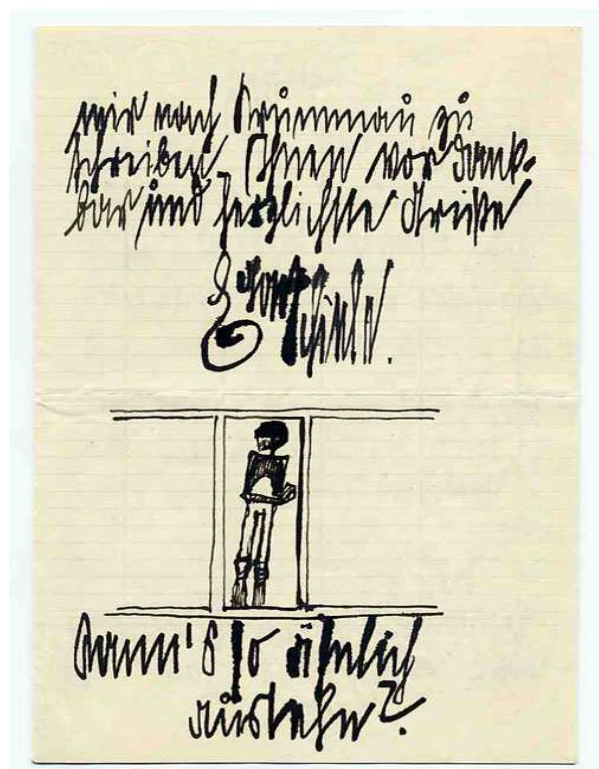 mir nach Krummau zu
schreiben, Ihnen vor dank-
bar und herzlichste Grüße
Egon Schiele.
Kann's so ähnlich
aussehn?